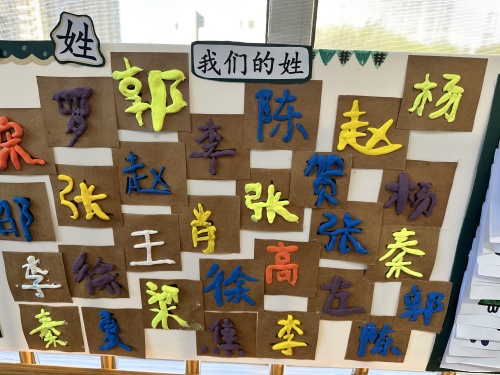 姓
我们的姓
罗 郭 李 陈 赵 杨
宋 张 赵 肖 张 贺 张 杨
邵 王 高 秦
李 徐 梁 徐 左 郭
秦 夏 焦 李 陈